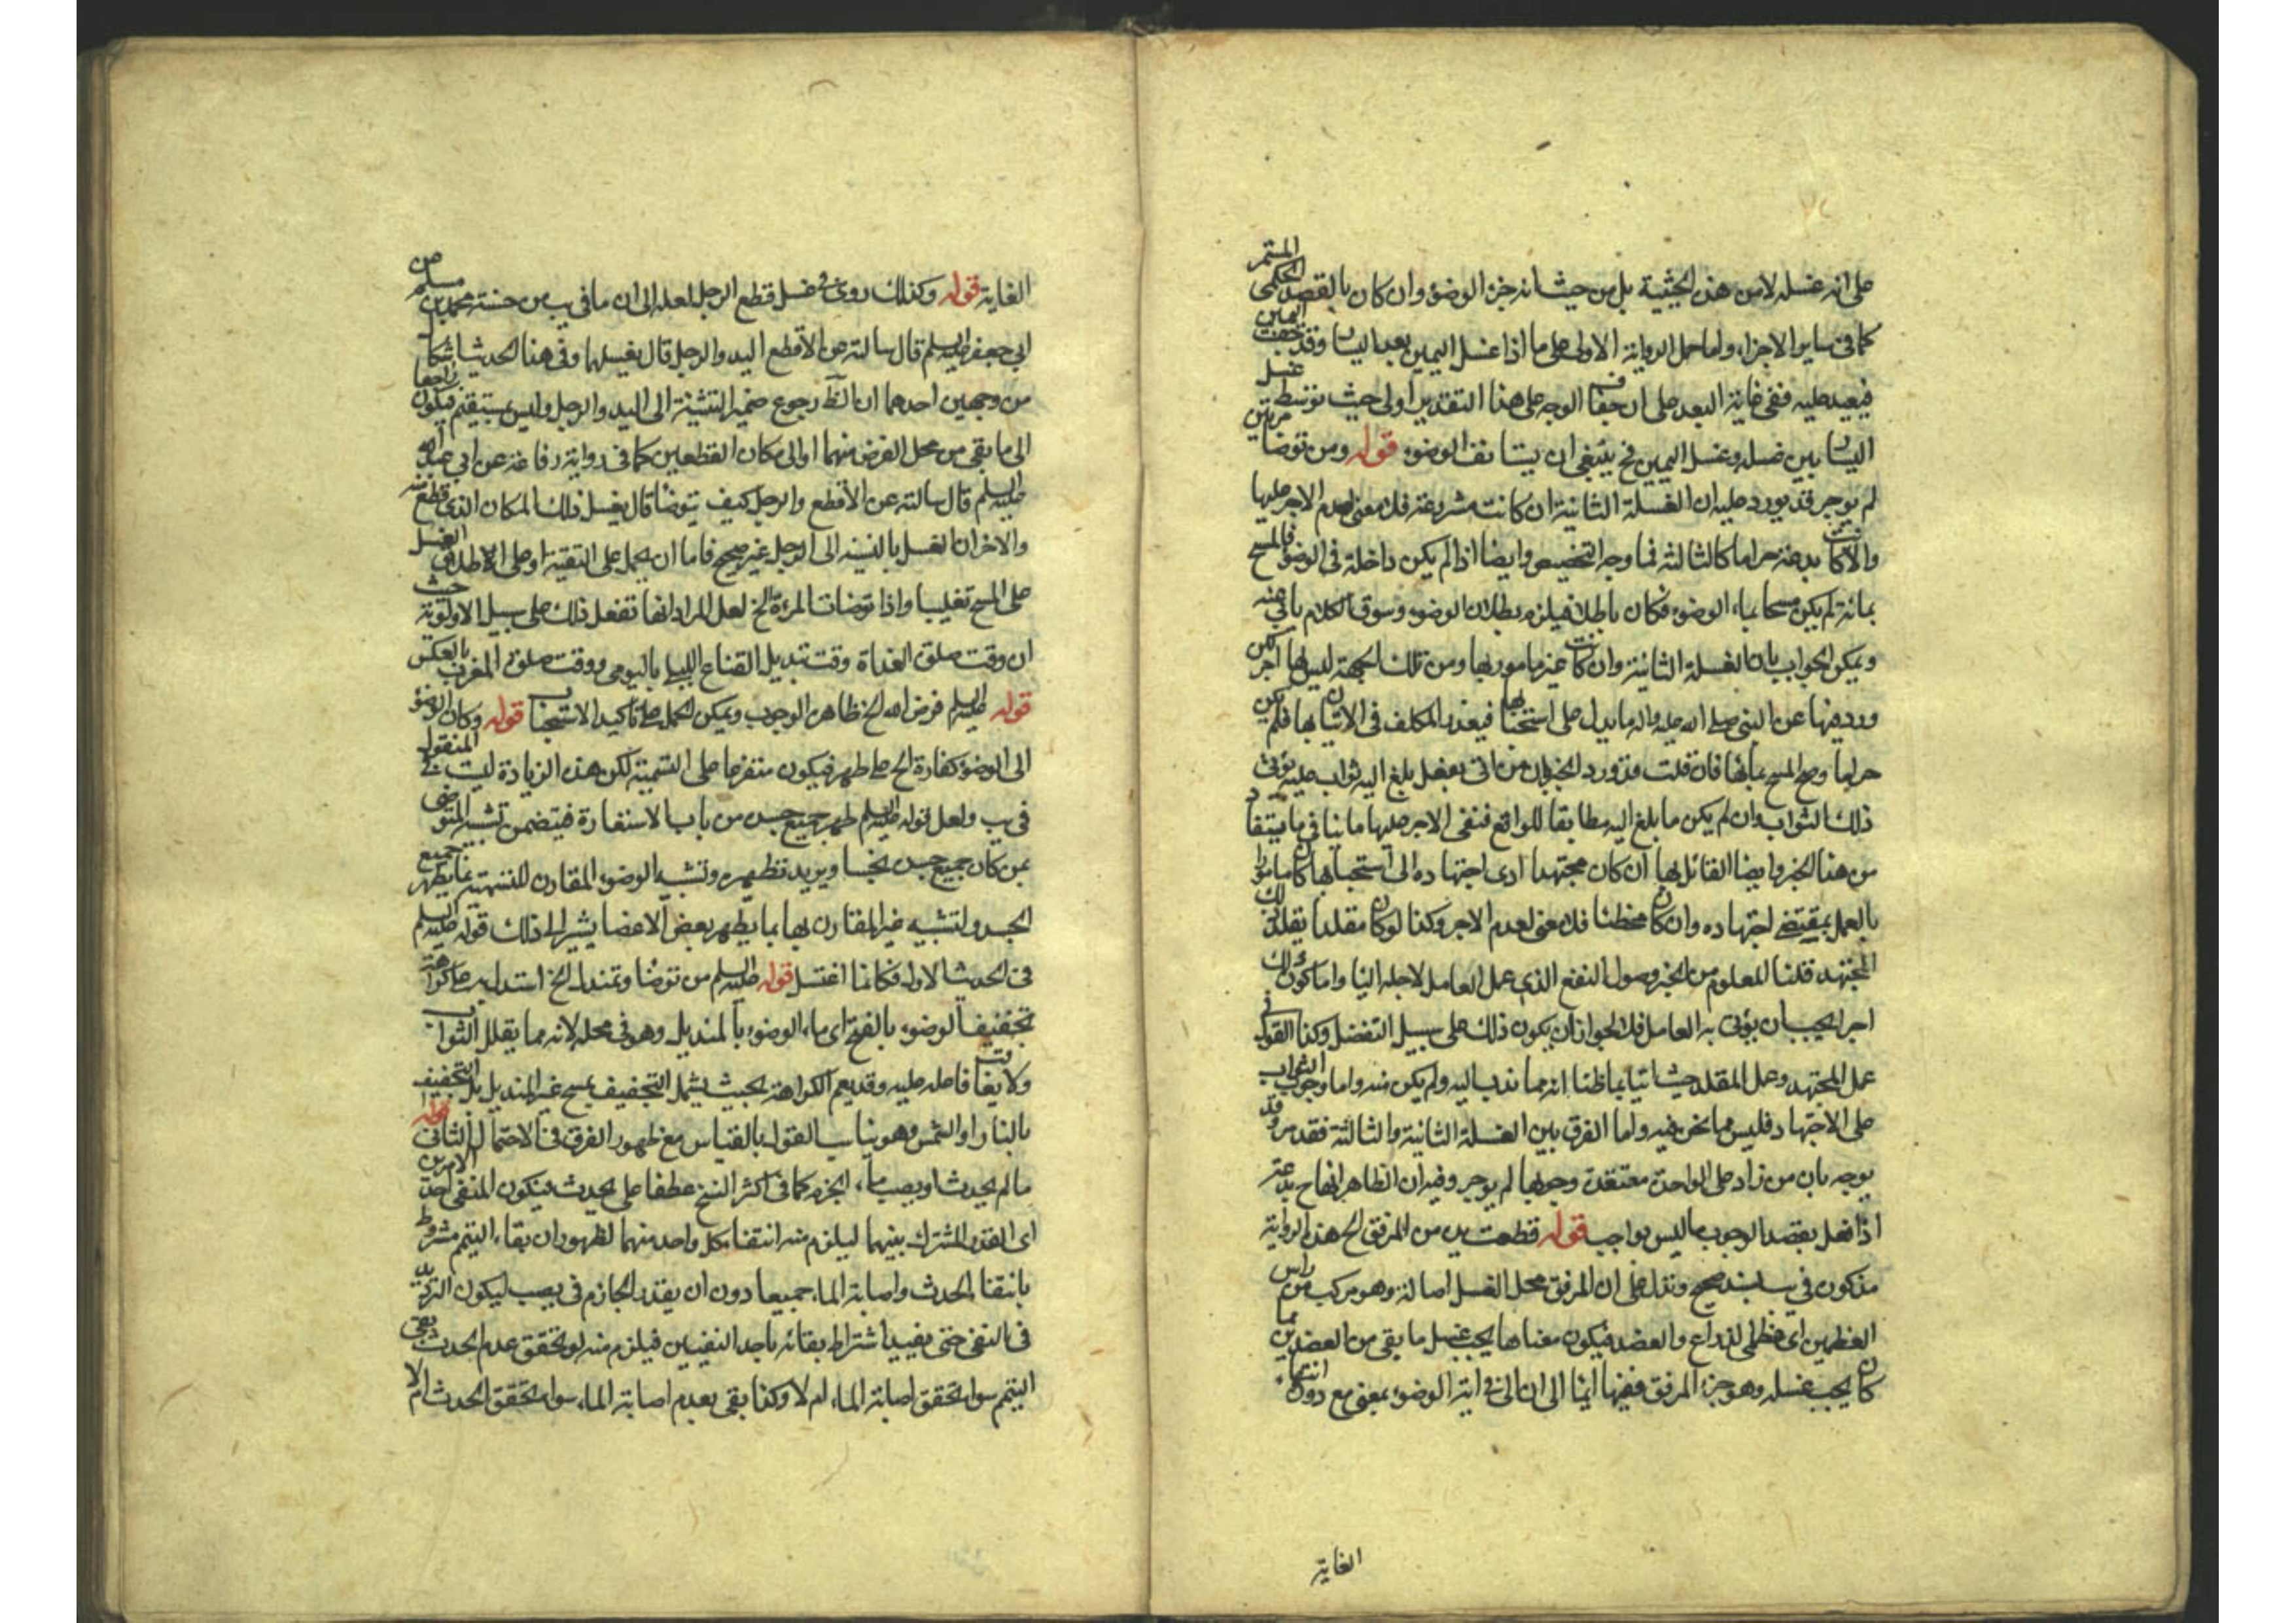 على انه غسله لا من هذه الحيثية بل من حيث انه جزء الوضوء وان كان بالقصد الحكمى المستمر
كما فى ساير الاجزاء واما حمل الرواية الاولى على ما اذا غسل اليمين بعد اليسار وقد جفت اليمين
فيعيد عليه ففى غاية البعد على ان جفاف الوجه على هذا التقدير اولى حيث توسط غسل
اليسار بين غسله وغسل اليمين فح ينبغى ان يستانف الوضوء قوله ومن توضا مرتين
لم يوجر قد يورد عليه ان الغسلة الثانية ان كانت مشروعة فلا معنى لعدم الاجر عليها
والا كانت بدعة حراما كالثالثة فما وجه التخصيص وايضا اذا لم يكن داخلة فى الوضوء فالمسح
بمائه لم يكن مسحا بماء الوضوء فكان باطلا فيلزم بطلان الوضوء وسوق الكلام يابى عنه
ويمكن الجواب بان الغسلة الثانية وان كانت غير مامور بها ومن تلك الجهة ليس لها اجر لكن
ورد فيها عن النبى صلى الله عليه واله ما يدل على استحبابها فيعذر المكلف فى الاتيان بها فلم يكن
حراما وصح المسح بمائها فان قلت قد ورد الخبر بان من اتى بفعل بلغ اليه ثواب عليه يؤتى
ذلك الثواب وان لم يكن ما بلغ اليه مطابقا للواقع فنفى الاجر عليها ما ينافى ما يستفاد
من هذا الخبر وايضا القائل بها ان كان مجتهدا ادى اجتهاده الى استحبابها كان مامورا
بالعمل بمقتضى اجتهاده وان كان مخطئا فلا معنى لعدم الاجر وكذا لو كان مقلدا يقلد ذلك
المجتهد قلنا المعلوم من الخبر وصول النفع الذى عمل العامل لاجله الينا واما كون ذلك
اجرا يجب ان يؤتى به العامل فلا لجواز ان يكون ذلك على سبيل التفضل وكذا القول فى
عمل المجتهد وعمل المقلد حيث اتيا بما ظنا انه مما ندب اليه ولم يكن منه واما وجوب الثواب
على الاجتهاد فليس مما نحن فيه واما الفرق بين الغسلة الثانية والثالثة فقد مر وقد
يوجه بان من زاد على الواحدة معتقدة وجوبها لم يوجر وفيه ان الظاهر انها ح بدعة
اذا فعل بقصد الوجوب ما ليس بواجب قوله قطعت يده من المرفق الخ هذه الرواية
مذكورة فى يب بسند صحيح وتدل على ان المرفق محل الغسل اصالة وهو مركب من راس
العظمين اى عظمى الذراع والعضد فيكون معناها يجب غسل ما بقى من العضد مما
كان يجب غسله وهو جزء المرفق ففيها ايماء الى ان الى فى اية الوضوء بمعنى مع دون انتهاء
الغاية
الغاية قوله وكذلك روى فى غسل قطع الرجل لعله الى ان ما فى يب من حسنة محمد بن مسلم عن
ابى جعفر عليه السلم قال سالته عن الاقطع اليد والرجل قال يغسلهما وفى هذا الحديث اشكال
من وجهين احدهما ان الظ رجوع ضمير التثنية الى اليد والرجل وليس بمستقيم فيكون راجعا
الى ما بقى من محل الفرض منهما او الى مكان القطعين كما فى رواية رفاعة عن ابى عبد الله
عليه السلم قال سالته عن الاقطع والرجل كيف يتوضا قال يغسل ذلك المكان الذى قطع منه
والاخر ان الغسل بالنسبة الى الرجل غير صحيح فاما ان يحمل على التقية او على اطلاق الغسل
على المسح تغليبا واذا توضات المرءة الخ لعل المراد انها تفعل ذلك على سبيل الاولوية حيث
ان وقت صلوة الغداة وقت تبديل القناع الليلى باليومى ووقت صلوة المغرب بالعكس
قوله عليه السلم فرض الله الخ ظاهره الوجوب ويمكن الحمل على تاكيد الاستحباب قوله وكان الوضوء
الى الوضوء كفارة الخ على طهر فيكون متفرعا على التسمية لكن هذه الزيادة ليست فى المنقول
فى يب ولعل قوله عليه السلم طهر جميع جسده من باب الاستعارة فيتضمن تشبيه المتوضى
بمن كان جميع جسده نجسا ويريد تطهيره وتشبيه الوضوء المقارن للتسمية بما يطهر جميع
الجسد ولتشبيه غير المقارن بها بما يطهر بعض الاعضا يشير الى ذلك قوله عليه السلم
فى الحديث الاول فكانما اغتسل قوله عليه السلم من توضا وتمندل الخ استدل به على كراهة
تجفيف الوضوء بالفتح اى ماء الوضوء بالمنديل وهو فى محله لانه مما يقلل الثواب
ولا يعاقب فاعله عليه وقد يعم الكراهة بحيث يشمل التجفيف بمسح غير المنديل بل التجفيف
بالنار او الشمس وهو يناسب القول بالقياس مع ظهور الفرق فى الاحتمال الثانى قوله
ما لم يحدث او يصب ماء الجزم كما فى اكثر النسخ عطفا على يحدث فيكون المنفى احد الامرين
اى القدر المشترك بينهما ليلزم منه انتفاء كل واحد منهما لظهور ان بقاء التيمم مشروط
بانتفاء الحدث واصابة الماء جميعا دون ان يقدر الجازم فى يصب ليكون الترديد
فى النفى حتى يفيد اشتراط بقائه باحد النفيين فيلزم منه لو تحقق عدم الحدث بقى
التيمم سواء تحقق اصابة الماء ام لا وكذا بقى بعدم اصابة الماء سواء تحقق الحدث ام لا